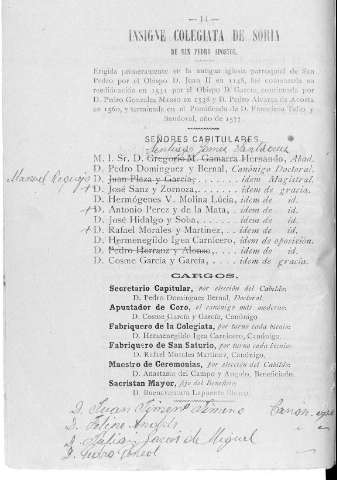 — 14 —
INSIGNE COLEGIATA DE SORIA
DE SAN PEDRO APOSTOL.
Erigida primeramente en la antigua iglesia parroquial de San
Pedro por el Obispo D. Juan II en 1148, fué comenzada su
reedificación en 1531 por el Obispo D. García, continuada por
D. Pedro Gonzalez Manso en 1536 y D. Pedro Alvarez de Acosta
en 1560, y terminada en el Pontificado de D. Francisco Tello y
Sandoval, año de 1577.
SEÑORES CAPITULARES.
Santiago Gomez
M. I. Sr. D. Gregorio M. Gamarra Hernando, Abad.
D. Pedro Dominguez y Bernal, Canónigo Doctoral.
Manuel
D. Juan Plaza y García, idem Magistral.
D. José Sanz y Zornoza, idem de gracia.
D. Hermógenes V. Molina Lúcia, idem de id.
D. Antonio Perez y de la Mata, idem de id.
D. José Hidalgo y Soba, idem de id.
D. Rafael Morales y Martinez, idem de id.
D. Hermenegildo Igea Carnicero, idem de oposición.
D. Pedro Herranz y Alonso, idem de id.
D. Cosme García y García, idem de gracia.
CARGOS.
Secretario Capitular, por elección del Cabildo.
D. Pedro Dominguez Bernal, Doctoral.
Apuntador de Coro, el canónigo más moderno.
D. Cosme García y García, Canónigo.
Fabriquero de la Colegiata, por turno cada bienio.
D. Hermenegildo Igea Carnicero, Canónigo.
Fabriquero de San Saturio, por turno cada bienio.
D. Rafael Morales Martinez, Canónigo.
Maestro de Ceremonias, por elección del Cabildo.
D. Anastasio del Campo y Angulo, Beneficiado.
Sacristan Mayor, fijo del Beneficio.
D. Buenaventura Lapuente
D. Juan Jimeno
D.
D. Julian Garcés de Miguel
D.